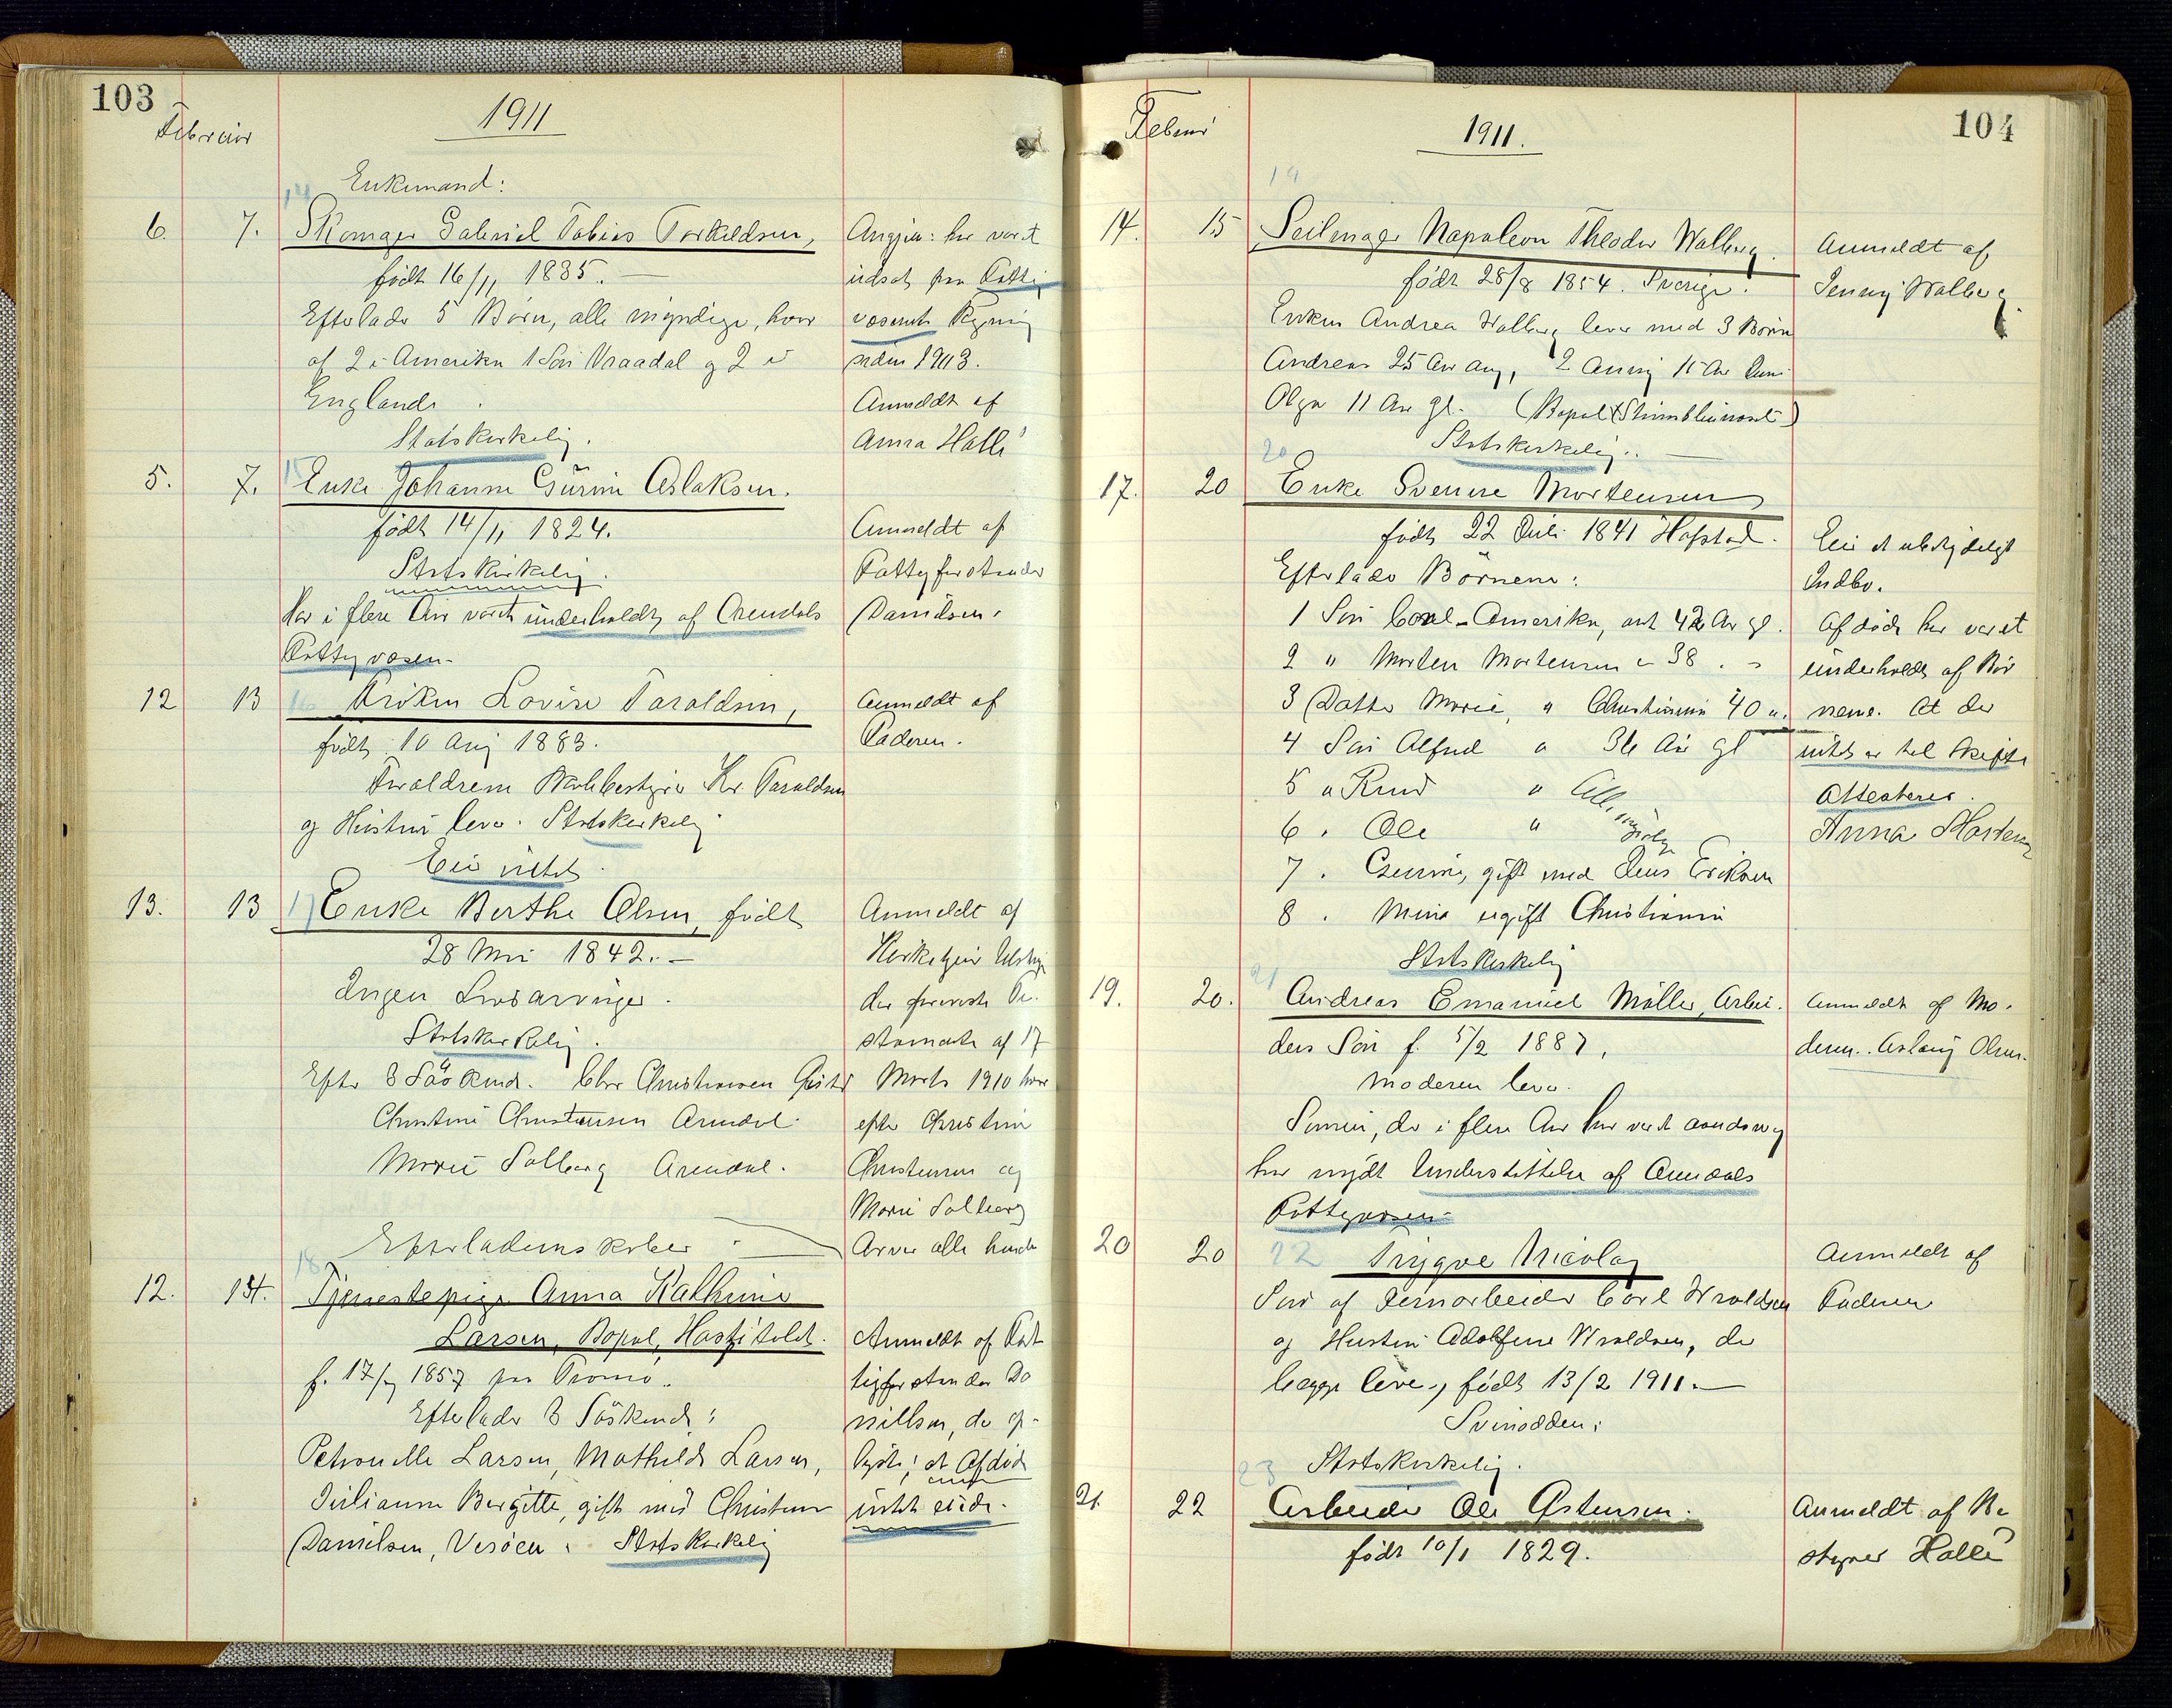 103
Februar
1911
Enkemand:
14
6. 7. Skomager Gabriel Tobias Torkildsen,
født 16/11 1835.
Efterlader 5 Børn, alle myndige, hvor
af 2 i Amerika 1 Søn Vraadal og 2 i
England.
Statskirkelig.
Angjen: har været
udsat paa Fattig
væsenets Regning
siden 1903.
Anmeldt af
Anna Halle
15
5. 7. Enke Johanne Gurine Aslaksen.
født 14/11 1824.
Statskirkelig.
Har i flere Aar været underholdt af Arendals
Fattigvæsen.
Anmeldt af
Fattigforstander
Danielsen.
16
12 13 Frøken Lovise Taraldsen,
født 10 Aug 1883.
Forældrene Kr. Taraldsen
og Hustru lever. Statskirkelig
Eier intet.
Anmeldt af
Faderen.
17
13. 13 Enke Berthe Olsen, født
28 Mai 1842.
Ingen Livsarvinger.
Statskirkelig.
Efter 3 Søskend. Chr Christensen
Christine Christensen Arendal.
Marie Solberg Arendal.
Efterladenskaber
Anmeldt af
der foreviste Te-
stamente af 17
Marts 1910 hvor
efter Christine
Christensen og
Marie Solberg
Arver alle hendes
18
12. 14. Tjenestepige Anna Kathrine
Larsen, Bopæl, Hospitalet.
f. 17/7 1857 paa Tromø.
Efterlader 3 Søskend:
Petronelle Larsen, Mathilde Larsen,
Julianne Bergitte, gift med Christen
Danielsen, Visøen. Statskirkelig
Anmeldt af Fat
tigforstander Da
nielsen, der op-
lyste, at Afdøde
intet eiede.
104
Februar
1911.
19
14. 15 Seilmager Napoleon Theodor Walberg.
født 28/8 1854. Sverige.
Enken Andrea Walberg lever med 3 Børn
Andreas 25 Aar
Olga 11 Aar gl. (Bopæl Strømsbuneset)
Statskirkelig.
Anmeldt af
Jenny Walberg.
20
17. 20 Enke Severine Mortensen
født 22 Juli 1841 Høfstad.
Efterlader Børnene:
1 Søn Carl - Amerika, ant 42 Aar gl.
2 " Morten Mortensen " 38 . "
3 Datter Marie, " Christiania 40 "
4 Søn Alfred " 36 Aar gl
5 " Knud " Alle myndige
6 . Ole "
7 . Gurine, gift med Jens Eriksen
8 . Mina ugift Christiania
Statskirkelig
Eier et ubetydeligt
Indbo.
Afdøde har været
underholdt af Bør
nene. At der
intet er til Skifte
Attesteres.
Anna Morten
21
19. 20. Andreas Emanuel Møller, Arbei-
ders Søn f. 5/2 1887,
Moderen lever.
Sønnen, der i flere Aar har været aandssvag
har nydt Understøttelse af Arendals
Fattigvæsen.
Anmeldt af Mo-
deren. Aslaug Olsen.
22
20 20 Trygve Nicolay
Søn af Jernarbeider Carl Wraldsen
og Hustru Adolfine Wraldsen, der
begge lever, født 13/2 1911.
Svinodden.
Statskirkelig.
Anmeldt af
Faderen
23
21. 22 Arbeider Ole Østensen.
født 10/1 1829.
Anmeldt af Be
styrer Halle